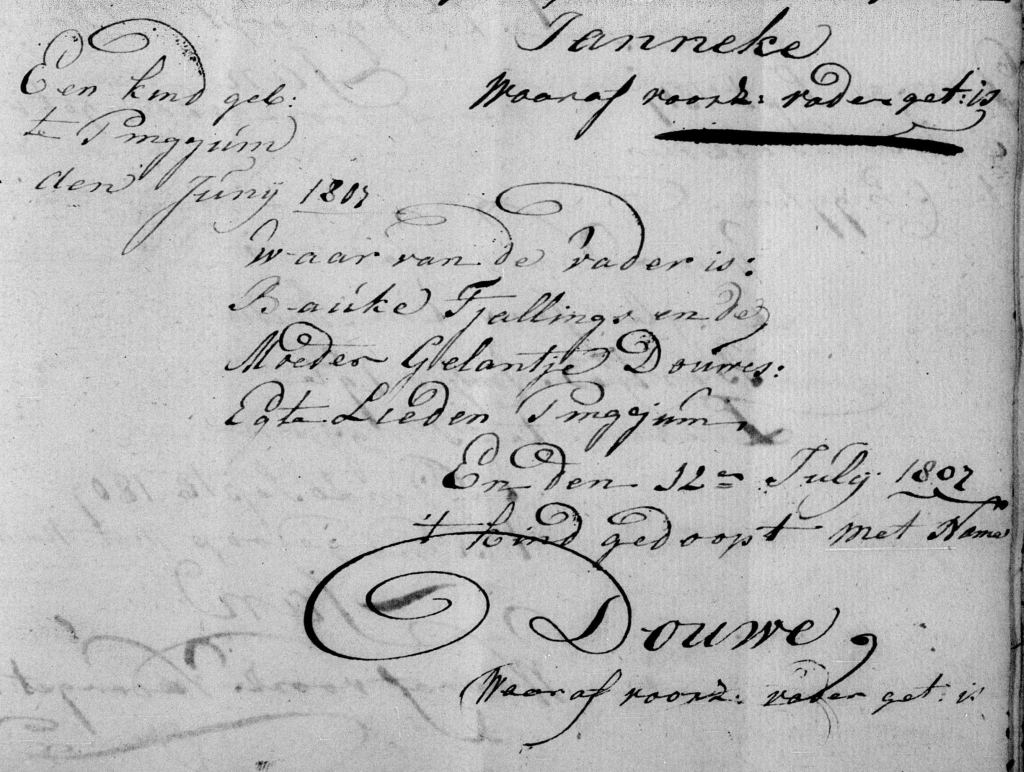 Janneke
Waaraf voorz: vader get: is
Een kind geb:
te Pingjum
den Juny 1807
waar van de vader is:
Bauke Tjallings en de
Moeder Gelantje Douwes:
Egte Lieden Pingjum,
En den 12en July 1807
't kind gedoopt met Name
Douwe,
Waaraf voorz: vader get: is